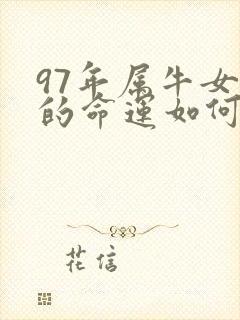 97年属牛女
的命运如何
花信